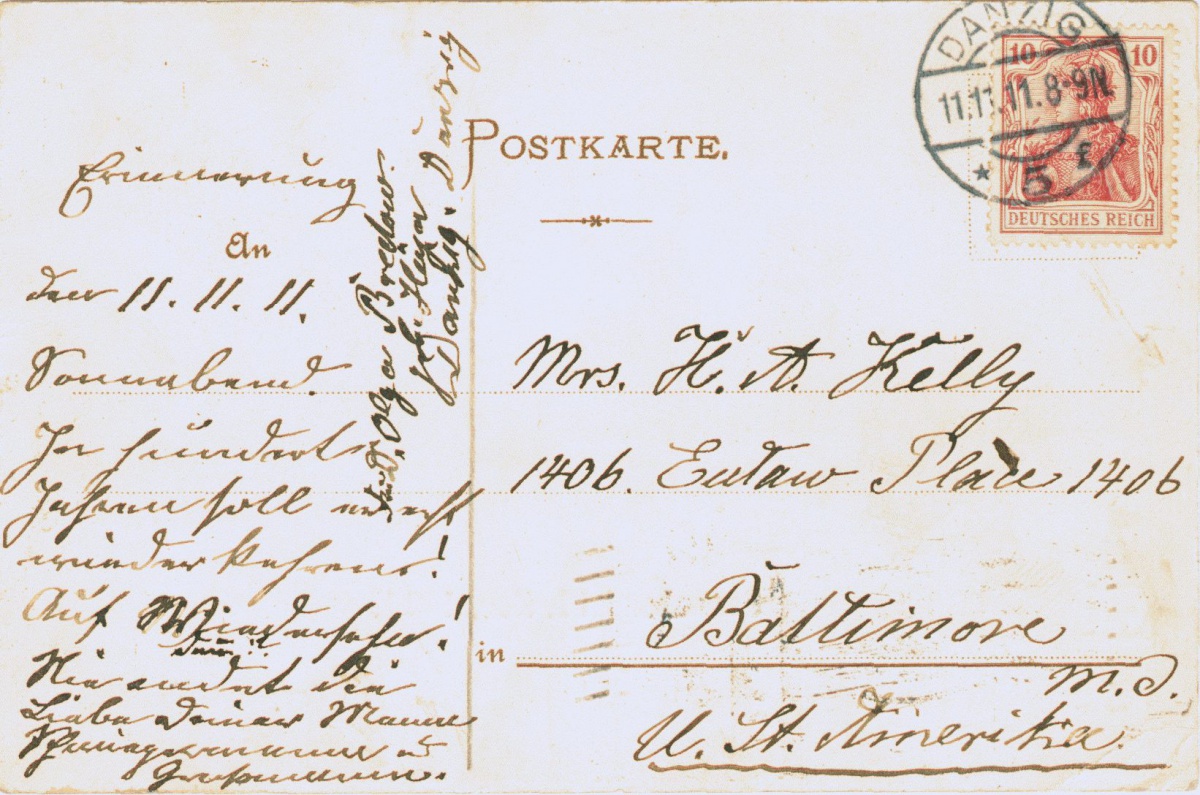 DANZIG
11.11.11.8-9N.
* 5 f
10 10
DEUTSCHES REICH
POSTKARTE.
Erinnerung
An
den 11. 11. 11.
Sonnabend.
In hundert
Jahren soll erst
wiederkehren!
Auf Wiedersehn!
dann!!
Nie endet die
Liebe Deiner Mama
Schwiegermama u
Grossmama.
Olga Bredow.
Danzig. Danzig
Mrs. H. A. Kelly
1406. Eutaw Place 1406
in Baltimore
M.d.
U. St. Amerika.